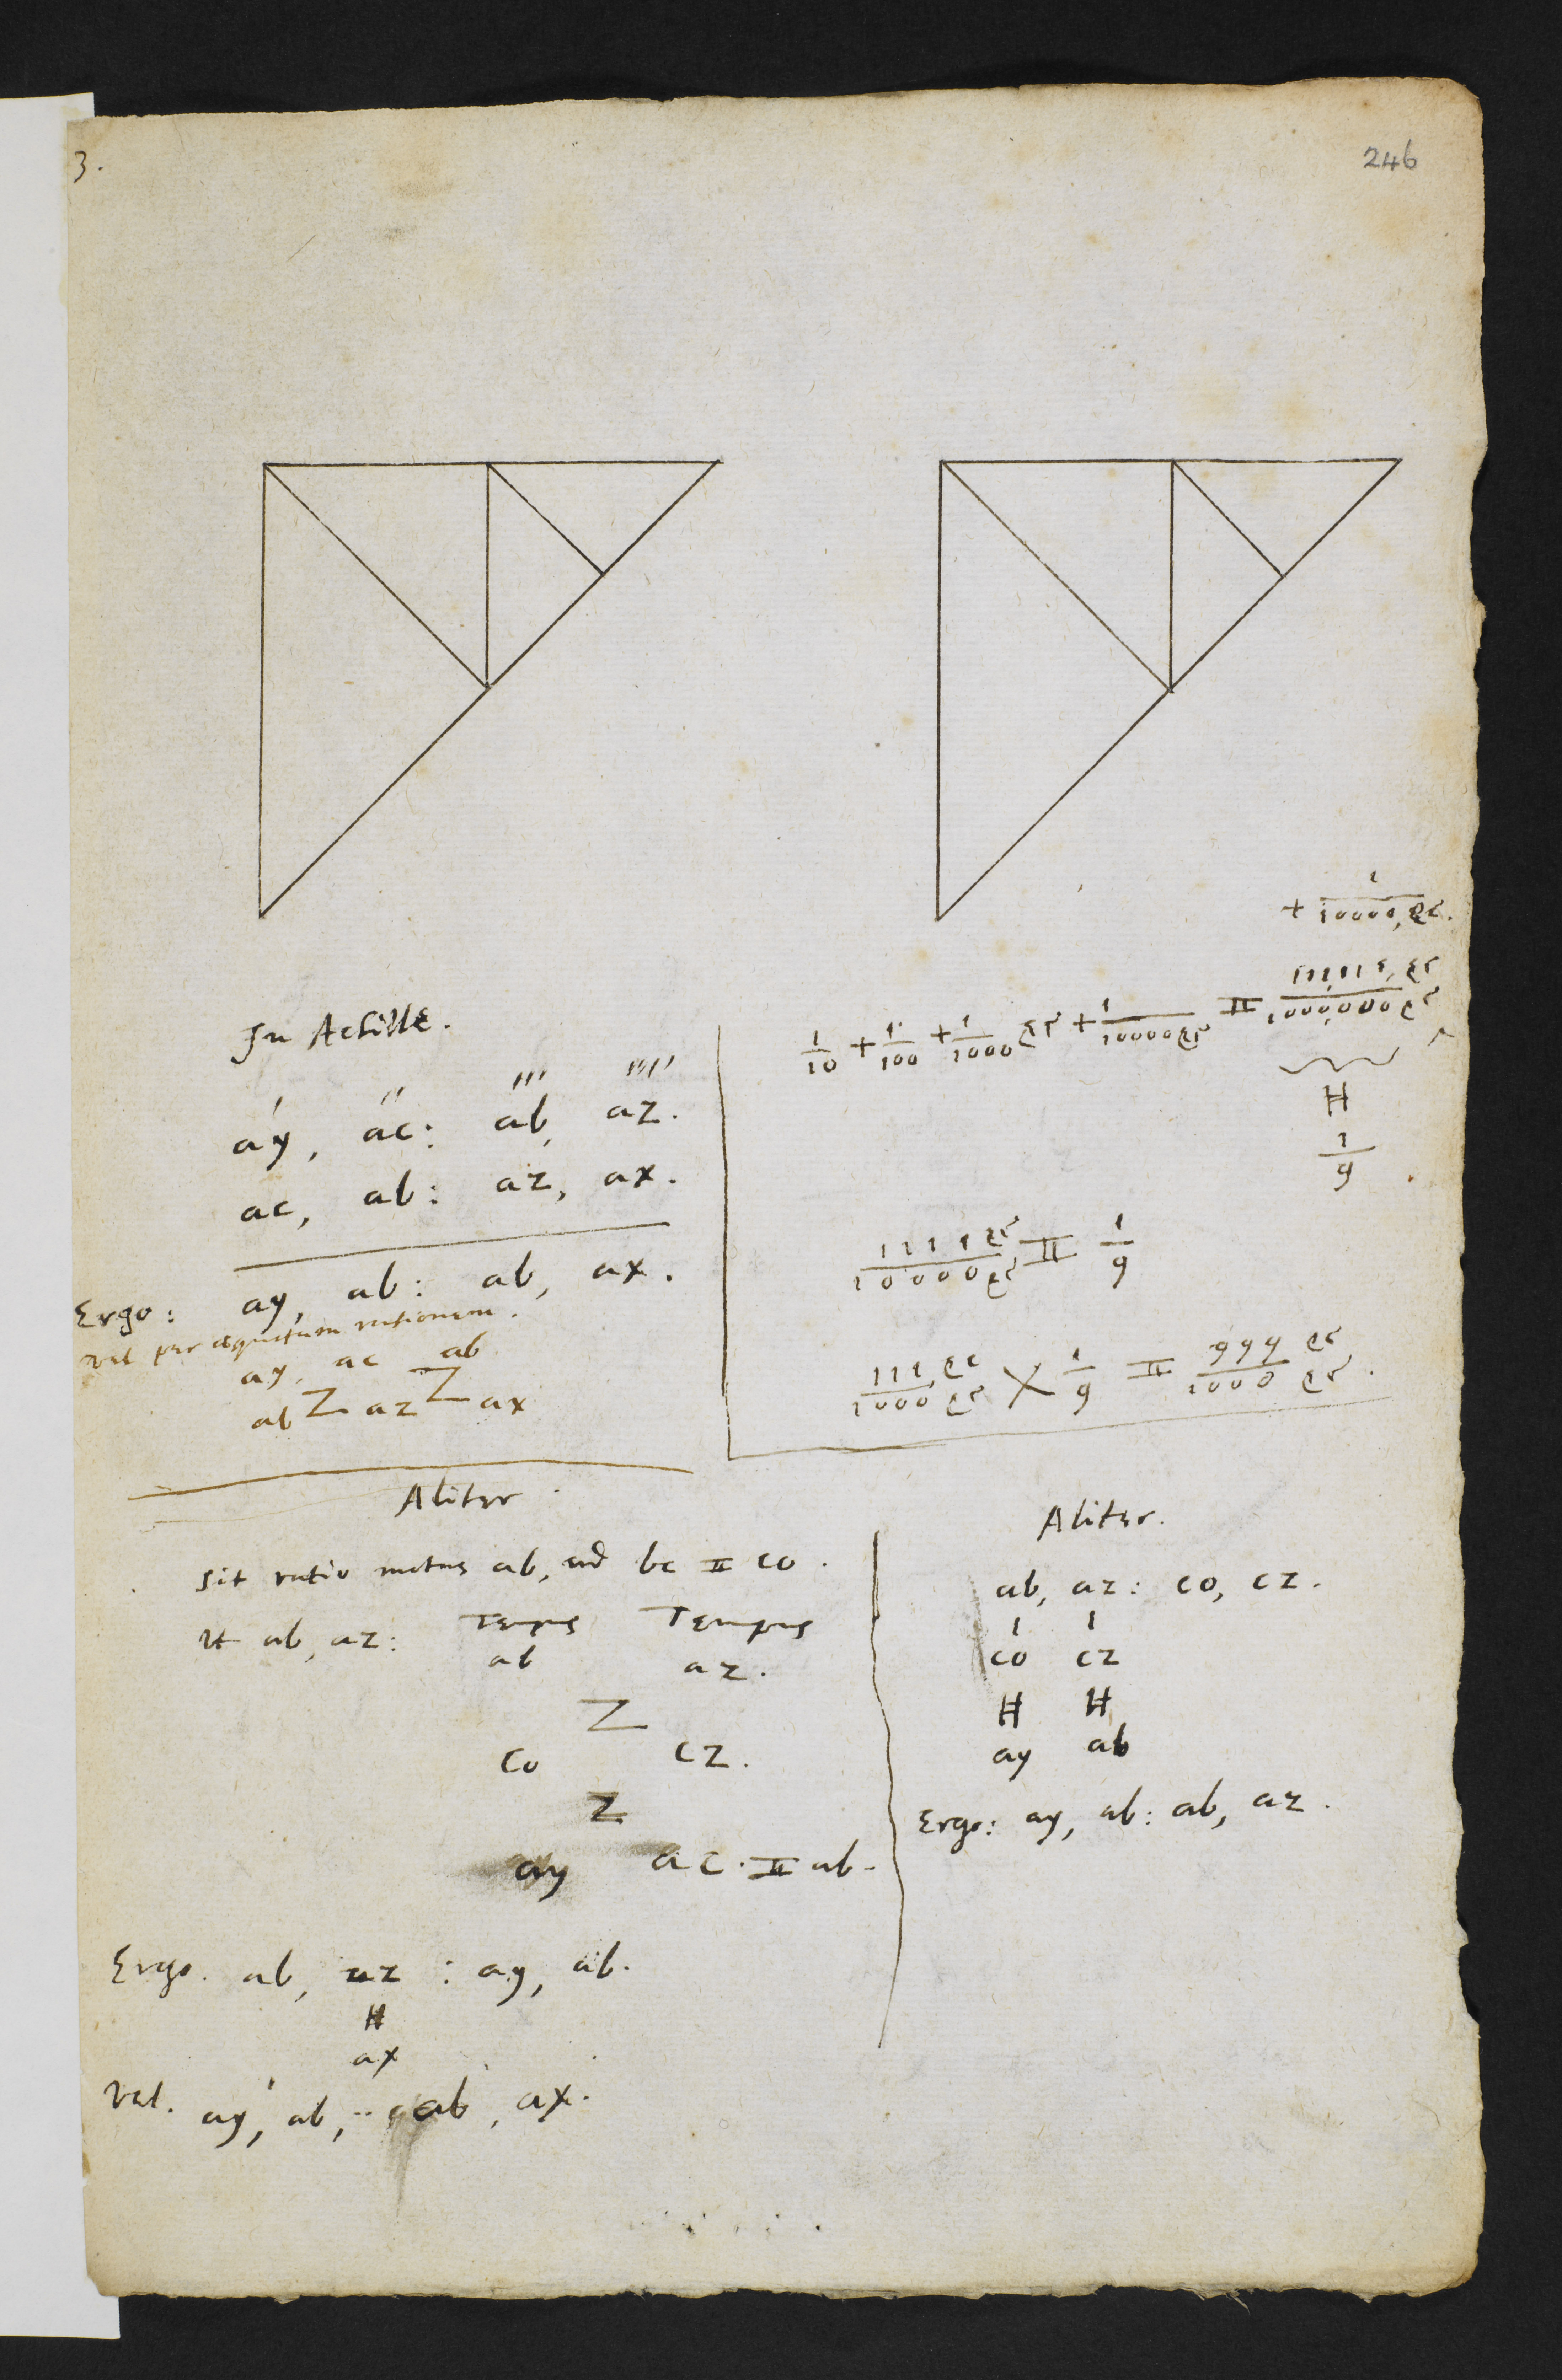 3.
246
In Achille.
ay, ac: ab, az.
ac, ab: az, ax.
Ergo: ay, ab: ab, ax.
vel per æquatam rationem.
ay, ac ab
ab az ax
+ 1/10000, &c.
1/10 + 1/100 + 1/1000 &c + 1/10000 &c = 111111, &c / 1000000 &c
1/9
1111 &c / 10000 &c = 1/9
111, &c / 1000 &c × 1/9 = 999 &c / 1000 &c.
Aliter
sit ratio motus ab, ad bc = co.
ut ab, az: Tempus Tempus
ab az.
co cz.
ay ac. = ab.
Ergo. ab, az : ay, ab.
ax
Vel. ay, ab, : ab, ax.
Aliter.
ab, az: co, cz.
co cz
ay ab
Ergo: ay, ab: ab, az.